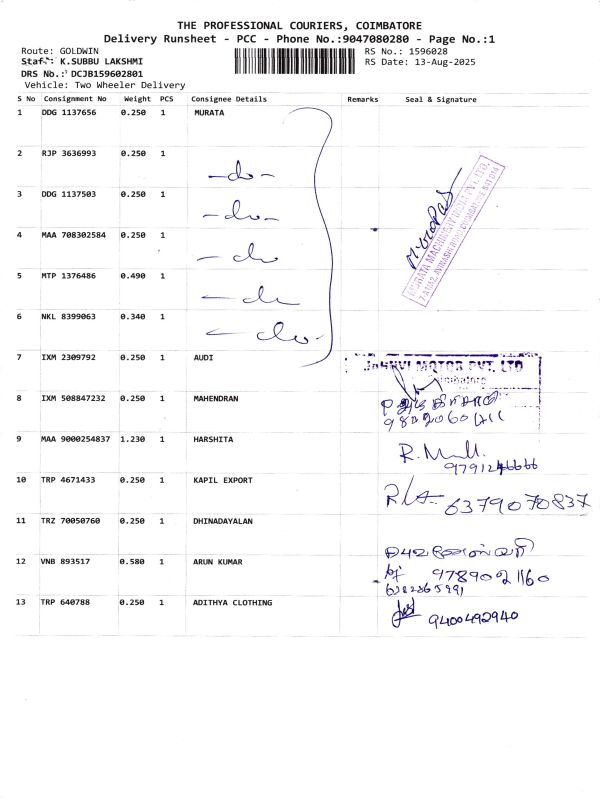 THE PROFESSIONAL COURIERS, COIMBATORE
Delivery Runsheet - PCC - Phone No.:9047080280 - Page No.:1
Route: GOLDWIN RS No.: 1596028
Staff: K.SUBBU LAKSHMI RS Date: 13-Aug-2025
DRS No.: DCJB159602801
Vehicle: Two Wheeler Delivery
S No Consignment No Weight PCS Consignee Details Remarks Seal & Signature
1 DDG 1137656 0.250 1 MURATA
2 RJP 3636993 0.250 1 -do-
3 DDG 1137503 0.250 1 -do-
4 MAA 708302584 0.250 1 -do
5 MTP 1376486 0.490 1 -do
6 NKL 8399063 0.340 1 -do-
MURATA MACHINERY INDIA PVT. LTD.
7 IXM 2309792 0.250 1 AUDI
JAHNVI MOTOR PVT. LTD
Coimbatore
8 IXM 508847232 0.250 1 MAHENDRAN
9 MAA 9000254837 1.230 1 HARSHITA
9791246666
10 TRP 4671433 0.250 1 KAPIL EXPORT
6379070837
11 TRZ 70050760 0.250 1 DHINADAYALAN
12 VNB 893517 0.580 1 ARUN KUMAR
9789021160
13 TRP 640788 0.250 1 ADITHYA CLOTHING
9400492940